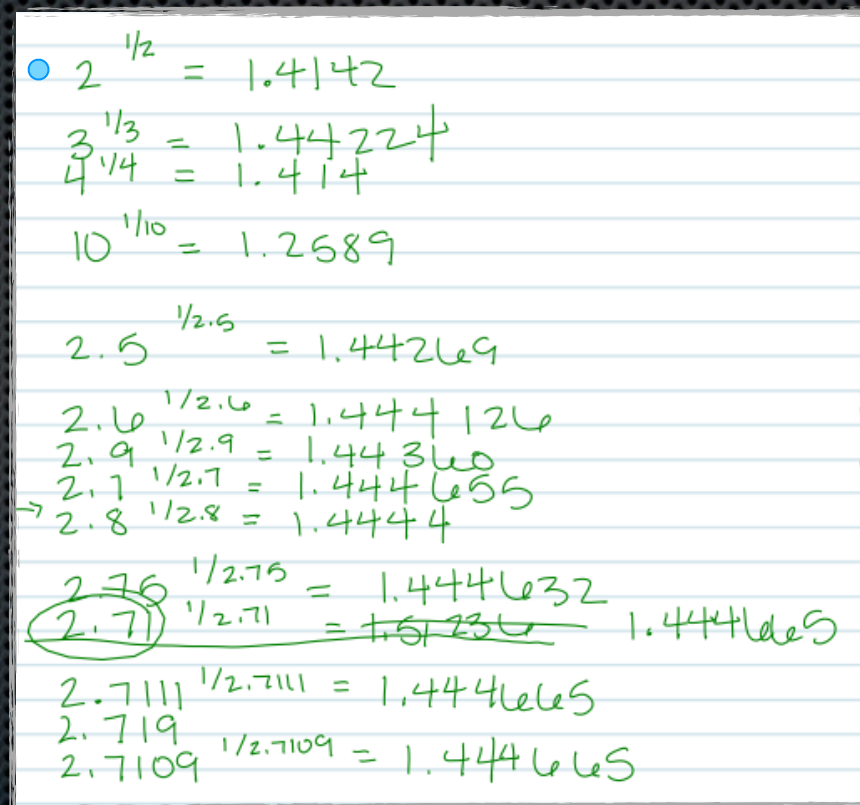 2^1/2 = 1.4142
3^1/3 = 1.44224
4^1/4 = 1.414
10^1/10 = 1.2589
2.5^1/2.5 = 1.44269
2.6^1/2.6 = 1.444126
2.9^1/2.9 = 1.44360
2.7^1/2.7 = 1.444655
→ 2.8^1/2.8 = 1.4444
2.75^1/2.75 = 1.444632
2.71^1/2.71 = 1.51236 1.444665
2.7111^1/2.7111 = 1.444665
2.719
2.7109^1/2.7109 = 1.444665